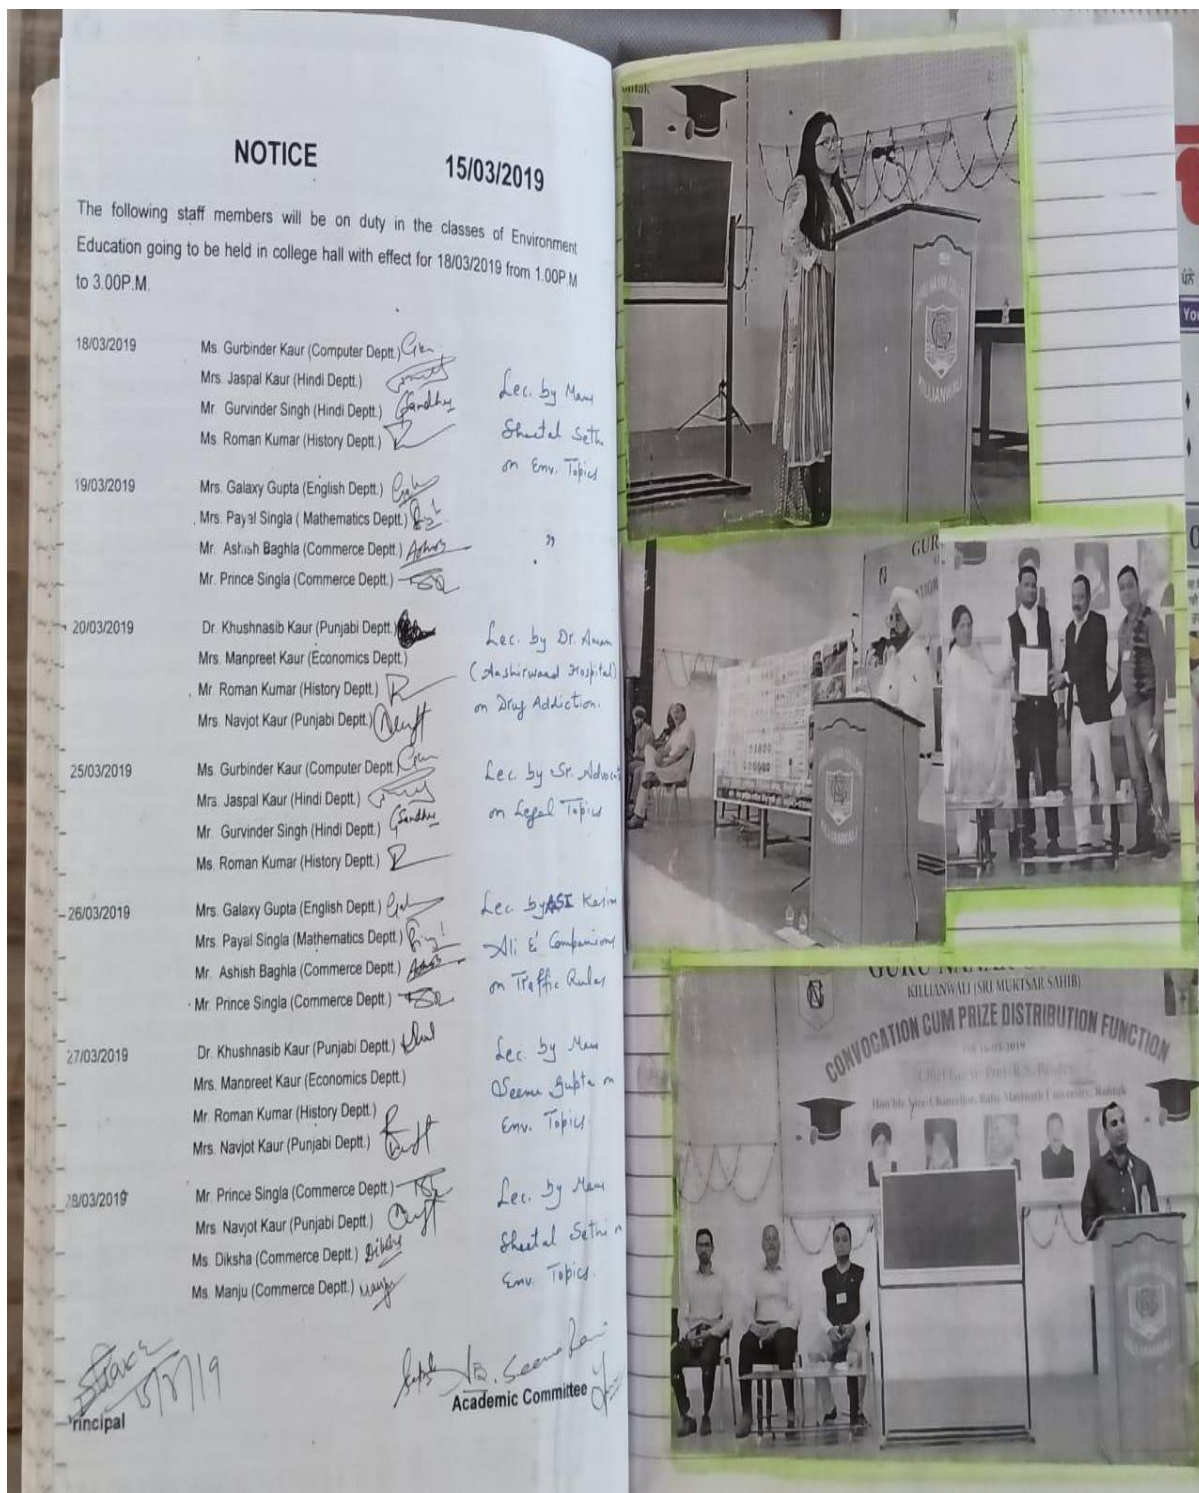 NOTICE
15/03/2019
The following staff members will be on duty in the classes of Environment
Education going to be held in college hall with effect for 18/03/2019 from 1.00P.M
to 3.00P.M.
18/03/2019 Ms. Gurbinder Kaur (Computer Deptt.)
Mrs. Jaspal Kaur (Hindi Deptt.)
Mr. Gurvinder Singh (Hindi Deptt.) Sandhu
Ms. Roman Kumar (History Deptt.)
Lec. by Mam
Sheetal Sethi
on Env. Topics
19/03/2019 Mrs. Galaxy Gupta (English Deptt.)
Mrs. Payal Singla ( Mathematics Deptt.)
Mr. Ashish Baghla (Commerce Deptt.) Ashish
Mr. Prince Singla (Commerce Deptt.)
"
20/03/2019 Dr. Khushnasib Kaur (Punjabi Deptt.)
Mrs. Manpreet Kaur (Economics Deptt.)
Mr. Roman Kumar (History Deptt.)
Mrs. Navjot Kaur (Punjabi Deptt.)
Lec. by Dr. Aman
(Aashirwaad Hospital)
on Drug Addiction.
25/03/2019 Ms. Gurbinder Kaur (Computer Deptt.
Mrs. Jaspal Kaur (Hindi Deptt.)
Mr. Gurvinder Singh (Hindi Deptt.) Sandhu
Ms. Roman Kumar (History Deptt.)
Lec. by Sr. Advocat
on Legal Topics
26/03/2019 Mrs. Galaxy Gupta (English Deptt.)
Mrs. Payal Singla (Mathematics Deptt.)
Mr. Ashish Baghla (Commerce Deptt.)
Mr. Prince Singla (Commerce Deptt.)
Lec. by ASI Kasim
Ali & Companions
on Traffic Rules
27/03/2019 Dr. Khushnasib Kaur (Punjabi Deptt.)
Mrs. Manpreet Kaur (Economics Deptt.)
Mr. Roman Kumar (History Deptt.)
Mrs. Navjot Kaur (Punjabi Deptt.)
Lec. by Mam
Seema Gupta on
Env. Topics.
28/03/2019 Mr. Prince Singla (Commerce Deptt.)
Mrs. Navjot Kaur (Punjabi Deptt.)
Ms. Diksha (Commerce Deptt.) Diksha
Ms. Manju (Commerce Deptt.) Manju
Lec. by Mam
Sheetal Sethi on
Env. Topics.
15/3/19
Principal
Seema Rani
Academic Committee
KILLIANWALI
GUR
KILLIANWALI
GURU NANAK
KILLIANWALI (SRI MUKTSAR SAHIB)
CONVOCATION CUM PRIZE DISTRIBUTION FUNCTION
Hon'ble Vice-Chancellor, Baba Mastnath University, Rohtak
You